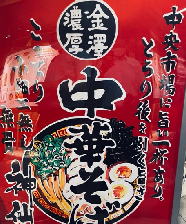 中央市場に旨い一杯あり
とろり後を引く旨さ
金澤
濃厚
中華そば
こってり
無し
神仙